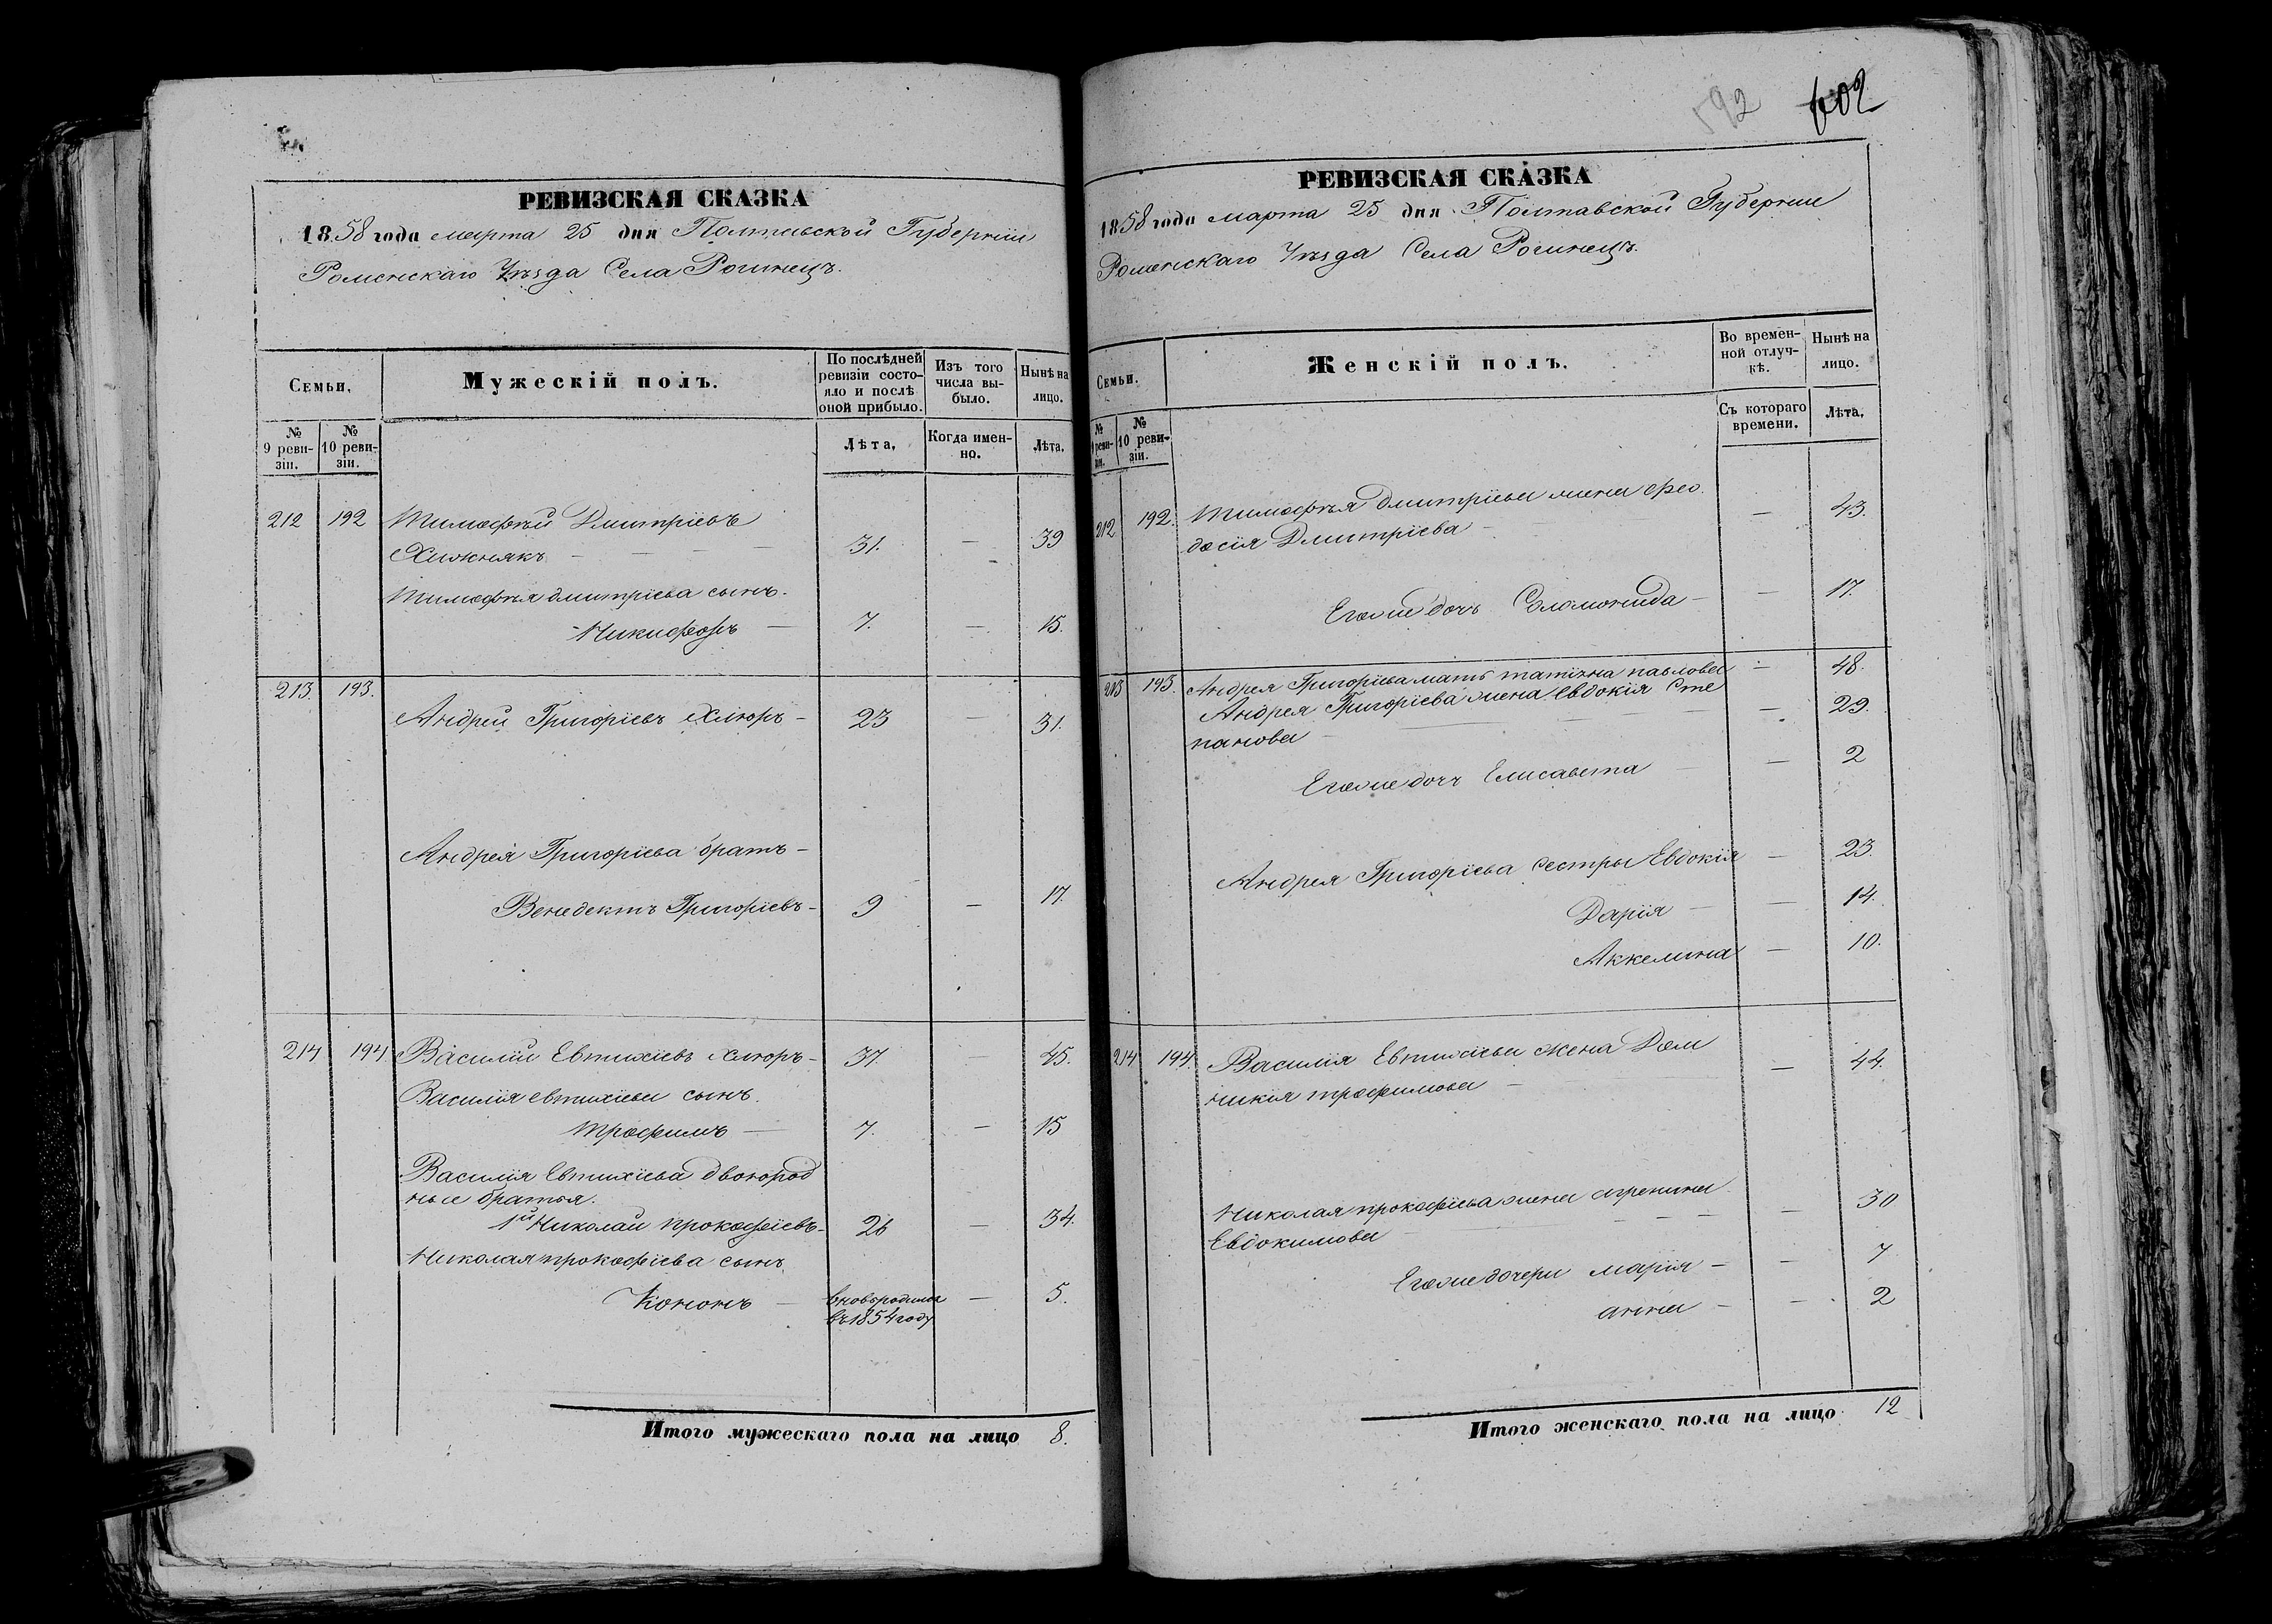 РЕВИЗСКАЯ СКАЗКА
1858 года марта 25 дня Полтавской Губернiи
Роменскаго Уѣзда Села Рогинецъ.
Семьи.
Мужескiй полъ.
По послѣдней ревизiи состо-
яло и послѣ
оной прибыло.
Изъ того
числа вы-
было.
Нынѣ на
лицо.
№
9 реви-
зiи.
№
10 реви-
зiи.
Лѣта.
Когда имен-
но.
Лѣта.
212 192 Тимофѣй Дмитрiевъ
Хижнякъ — 31. — 39
Тимофѣя дмитрiева сынъ.
Никифоръ — 7. — 15.
213. 193.
Андрей Григорiевъ Хлюръ — 23 — 31.
Андрея Григорiева братъ —
Венедектъ Григорiевъ — 9 — 17.
214 194 Василiй Евтихiевъ Хлюръ — 37. — 45.
Василiя евтихiева сынъ.
Трофимъ — 7. — 15
Василiя Евтихiева двоюрод
ные братья.
1й Николай прокофiевъ — 26 — 34.
Николая прокофiева сынъ
Кононъ — вновьродился — 5.
въ 1854 году
Итого мужескаго пола на лицо 8.
592 602
РЕВИЗСКАЯ СКАЗКА
1858 года марта 25 дня Полтавской Губернiи
Роменскаго Уѣзда Села Рогинецъ.
Семьи.
Женскiй полъ.
Во времен-
ной отлуч-
кѣ.
Нынѣ на
лицо.
№
9 реви-
зiи.
№
10 реви-
зiи.
Съ котораго
времени.
Лѣта.
212 192. Тимофѣя Дмитрiева жена Фео
досiя Дмитрiева — — 43.
Егоже дочь Соломонида — — 17.
213 193. Андрея Григорiева мать татiяна павлова — 48.
Андрея Григорiева жена Евдокiя Сте
панова — — 29.
Егоже дочь Елисавета — — 2
Андрея Григорiева сестры Евдокiя — 23.
Дарiя — — 14.
Аккелина — 10.
214 194. Василiя Евтихiева жена Дом
никiя трофимова — — 44.
Николая прокофiева жена агрепина
Евдокимова — — 30
Егоже дочери марiя — — 7
анна — — 2
Итого женскаго пола на лицо 12